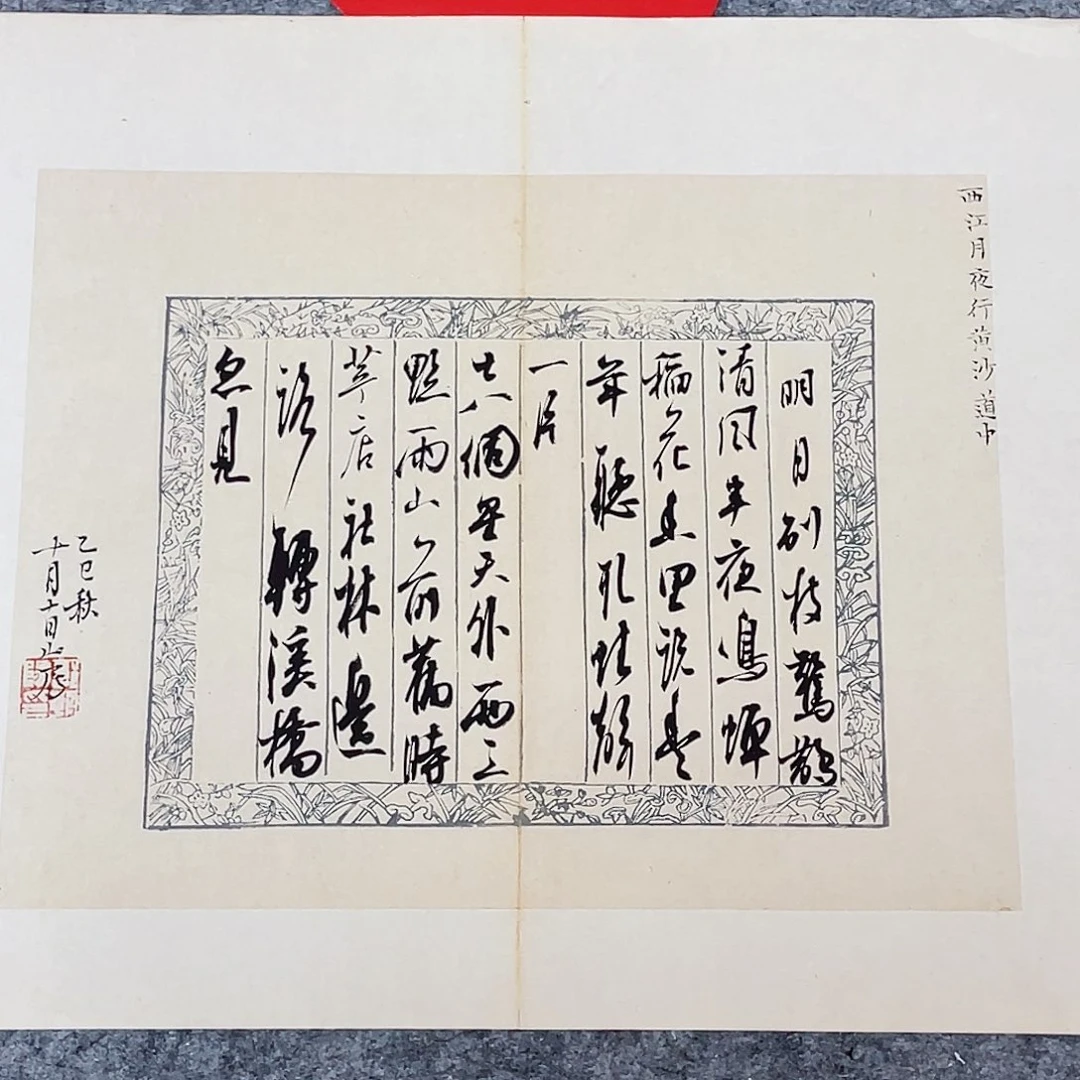 西江月夜行黄沙道中
明月别枝驚鵲
清風半夜鳴蟬
稻花香里説豐
年聽取蛙聲
一片
七八個星天外兩三
點雨山前舊時
茅店社林邊
路轉溪橋
忽見
乙巳秋
十月十日